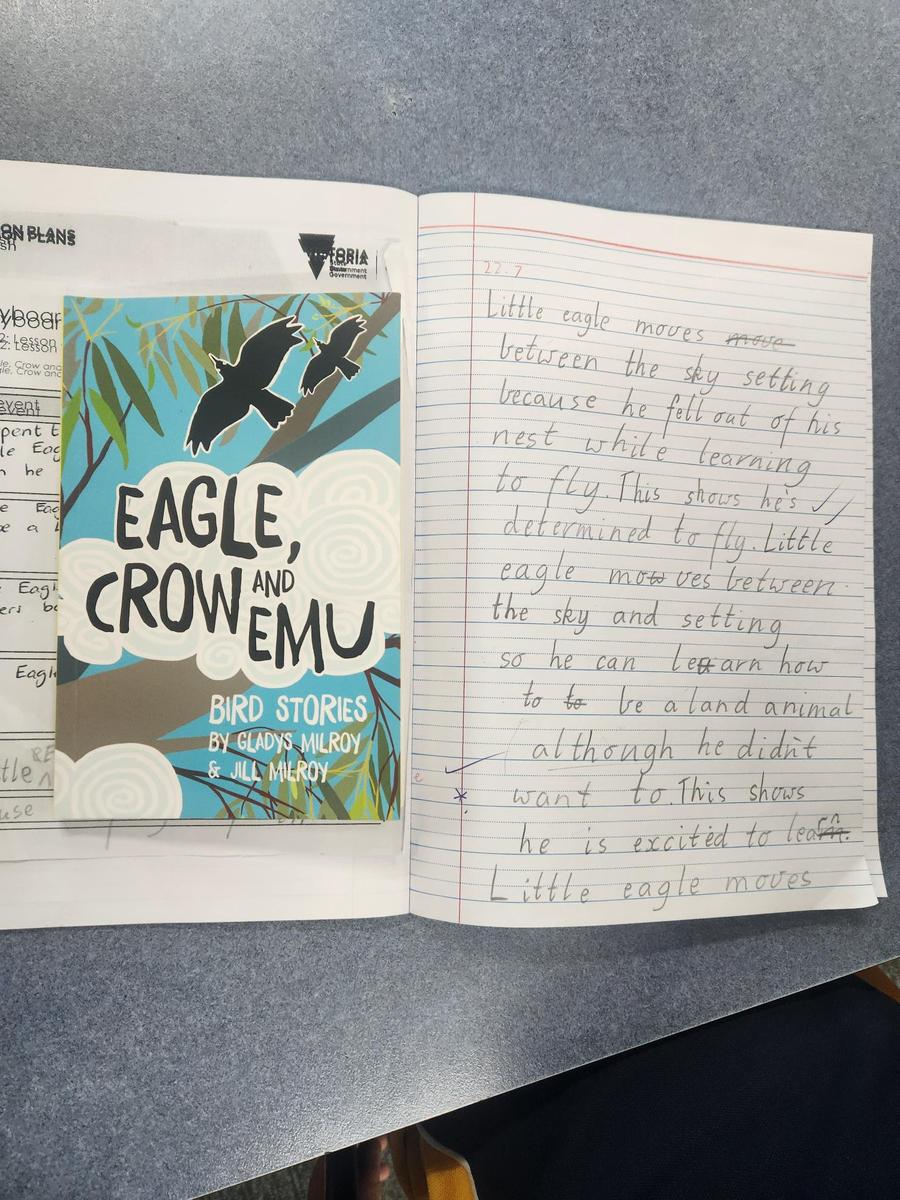 ON PLANS
sh
VICTORIA
State
Government
yboar
2: Lesson
le, Crow and
event
pent t
le Eag
n he
e Eag
e a
Eagl
ers be
Eagle
RE
tle ^
use
EAGLE,
CROW AND
EMU
BIRD STORIES
BY GLADYS MILROY
& JILL MILROY
22.7
Little eagle moves move
between the sky setting
because he fell out of his
nest while learning
to fly. This shows he's
determined to fly. Little
eagle mow oves between
the sky and setting
so he can lea arn how
to to be a land animal
although he didn't
e
want to. This shows
*
he is excited to learn
Little eagle moves